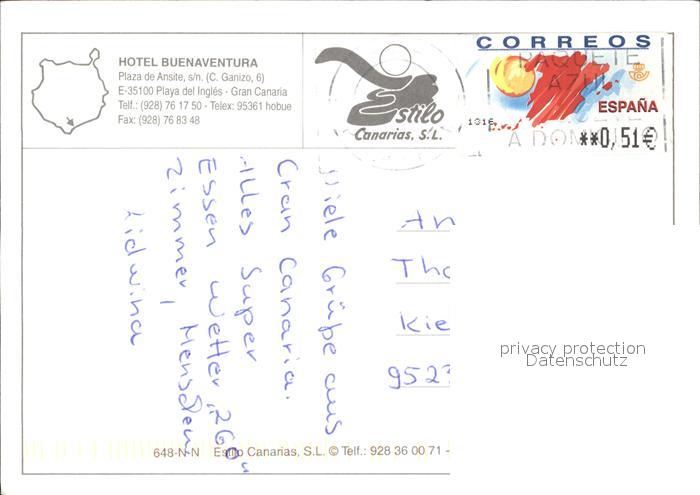 HOTEL BUENAVENTURA
Plaza de Ansite, s/n. (C. Ganizo, 6)
E-35100 Playa del Inglés - Gran Canaria
Telf.: (928) 76 17 50 - Telex: 95361 hobue
Fax: (928) 76 83 48
Estilo
Canarias, S.L.
CORREOS
PAQUETE
AZUL
ESPAÑA
1316
A DOMICILIO
**0,51€
Viele Grüße aus
Gran Canaria.
Alles Super
Essen Wetter „26°“
Zimmer, Menschen
Lidwina
An
Tho
Kie
952
privacy protection
Datenschutz
648-N-N Estilo Canarias, S.L. © Telf.: 928 36 00 71 -